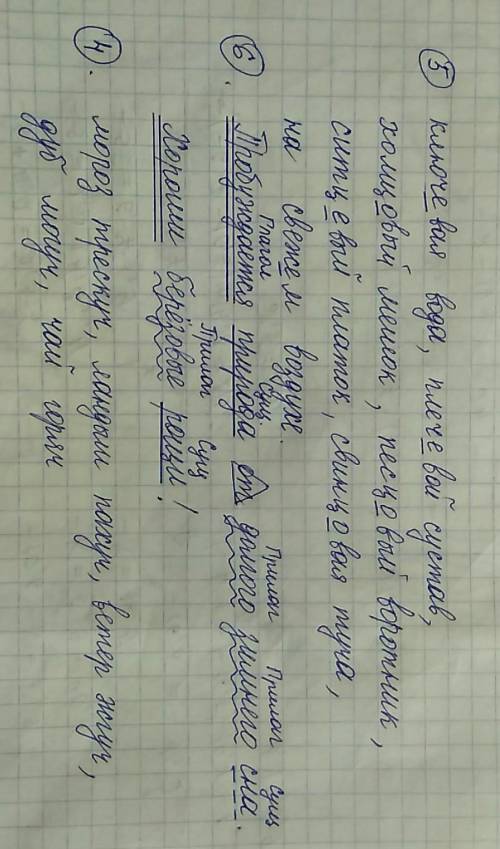 5 ключевая вода, плечевой сустав,
холщовый мешок, песцовый воротник,
ситцевый платок, свинцовая туча,
на свежем воздухе.
Глагол Сущ. Прилаг Прилаг Сущ
6. Пробуждается природа от долгого зимнего сна.
Прилаг Сущ
Хороши берёзовые рощи!
4. мороз трескуч, ландыш пахуч, ветер жгуч,
дуб могуч, чай горяч